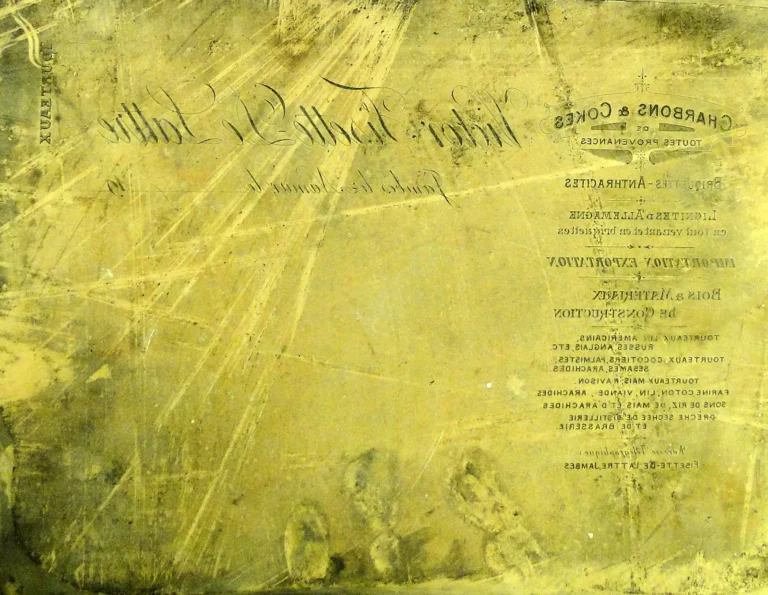 CHARBONS & COKES
DE
TOUTES PROVENANCES
BRIQUETTES-ANTHRACITES
LIGNITES D'ALLEMAGNE
en tout venant et en briquettes
IMPORTATION EXPORTATION
BOIS & MATERIAUX
DE CONSTRUCTION
TOURTEAUX LIN AMÉRICAINS,
RUSSES, ANGLAIS, ETC
TOURTEAUX COCOTIERS, PALMISTES,
SESAMES, ARACHIDES
TOURTEAUX MAIS, RAVISON.
FARINE COTON, LIN, VIANDE, ARACHIDES
SONS DE RIZ, DE MAIS ET D'ARACHIDES
DRÈCHE SÉCHÉE DE DISTILLERIE
ET DE BRASSERIE
Adresse Télégraphique:
FISETTE-DE LATTRE JAMBES
Victor Fisette-De Lattre
Jambes lez-Namur, le 19
TOURTEAUX